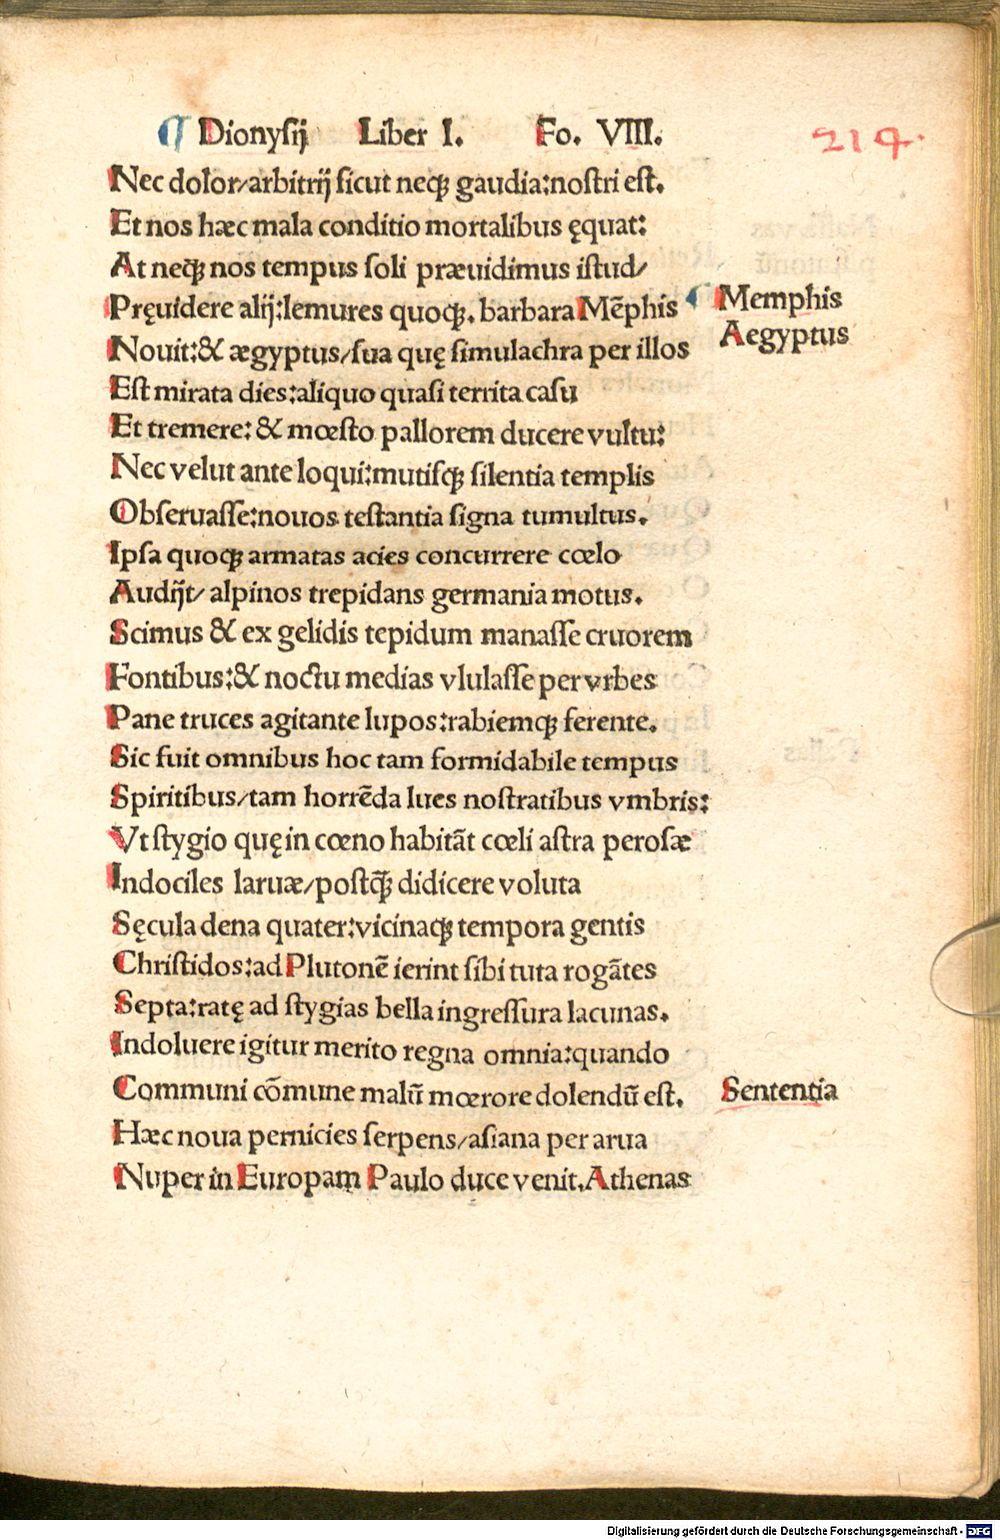 ¶ Dionysij Liber I. Fo. VIII.
214.
Nec dolor/arbitrij sicut neqꝫ gaudia:nostri est.
Et nos hæc mala conditio mortalibus ęquat:
At neqꝫ nos tempus soli præuidimus istud/
Pręuidere alij:lemures quoqꝫ. barbara Mēphis
Memphis
Nouit:& ægyptus/sua quę simulachra per illos
Aegyptus
Est mirata dies:aliquo quasi territa casu
Et tremere: & mœsto pallorem ducere vultu:
Nec velut ante loqui:mutisqꝫ silentia templis
Obseruasse:nouos testantia signa tumultus.
Ipsa quoqꝫ armatas acies concurrere cœlo
Audijt/ alpinos trepidans germania motus.
Scimus & ex gelidis tepidum manasse cruorem
Fontibus:& noctu medias vlulasse per vrbes
Pane truces agitante lupos:rabiemqꝫ ferente.
Sic fuit omnibus hoc tam formidabile tempus
Spiritibus/tam horrēda lues nostratibus vmbris:
Vt stygio quę in cœno habitāt cœli astra perosæ
Indociles laruæ/postq̄ꝫ didicere voluta
Sęcula dena quater:vicinaqꝫ tempora gentis
Christidos:ad Plutonē ierint sibi tuta rogātes
Septa:ratę ad stygias bella ingressura lacunas.
Indoluere igitur merito regna omnia:quando
Communi cōmune malū mœrore dolendū est.
Sententia
Hæc noua pernicies serpens/asiana per arua
Nuper in Europam Paulo duce venit.Athenas
Digitalisierung gefördert durch die Deutsche Forschungsgemeinschaft - DFG